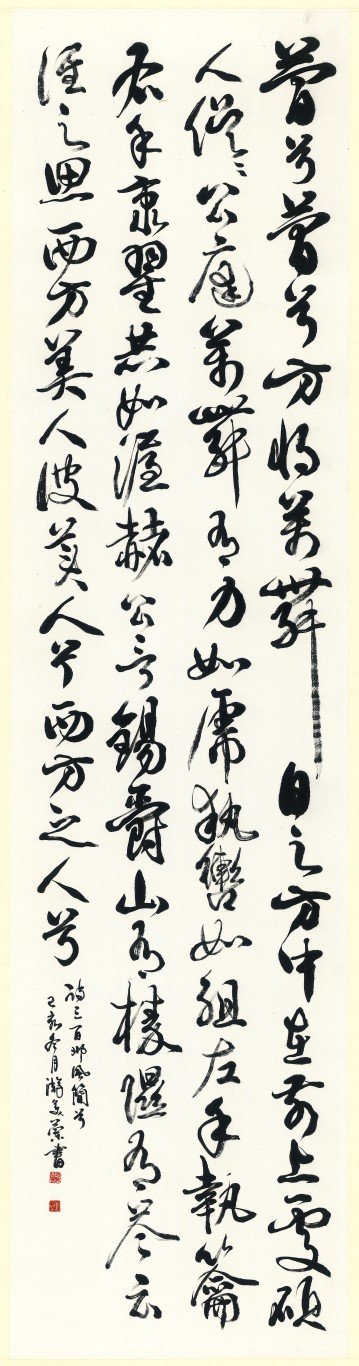 簡兮簡兮方將萬舞 日之方中在前上處碩
人俁〻公庭萬舞有力如虎執轡如組左手執籥
右手秉翟赫如渥赭公言錫爵山有榛隰有苓云
誰之思西方美人彼美人兮西方之人兮
詩三百邶風簡兮
己亥冬月 書